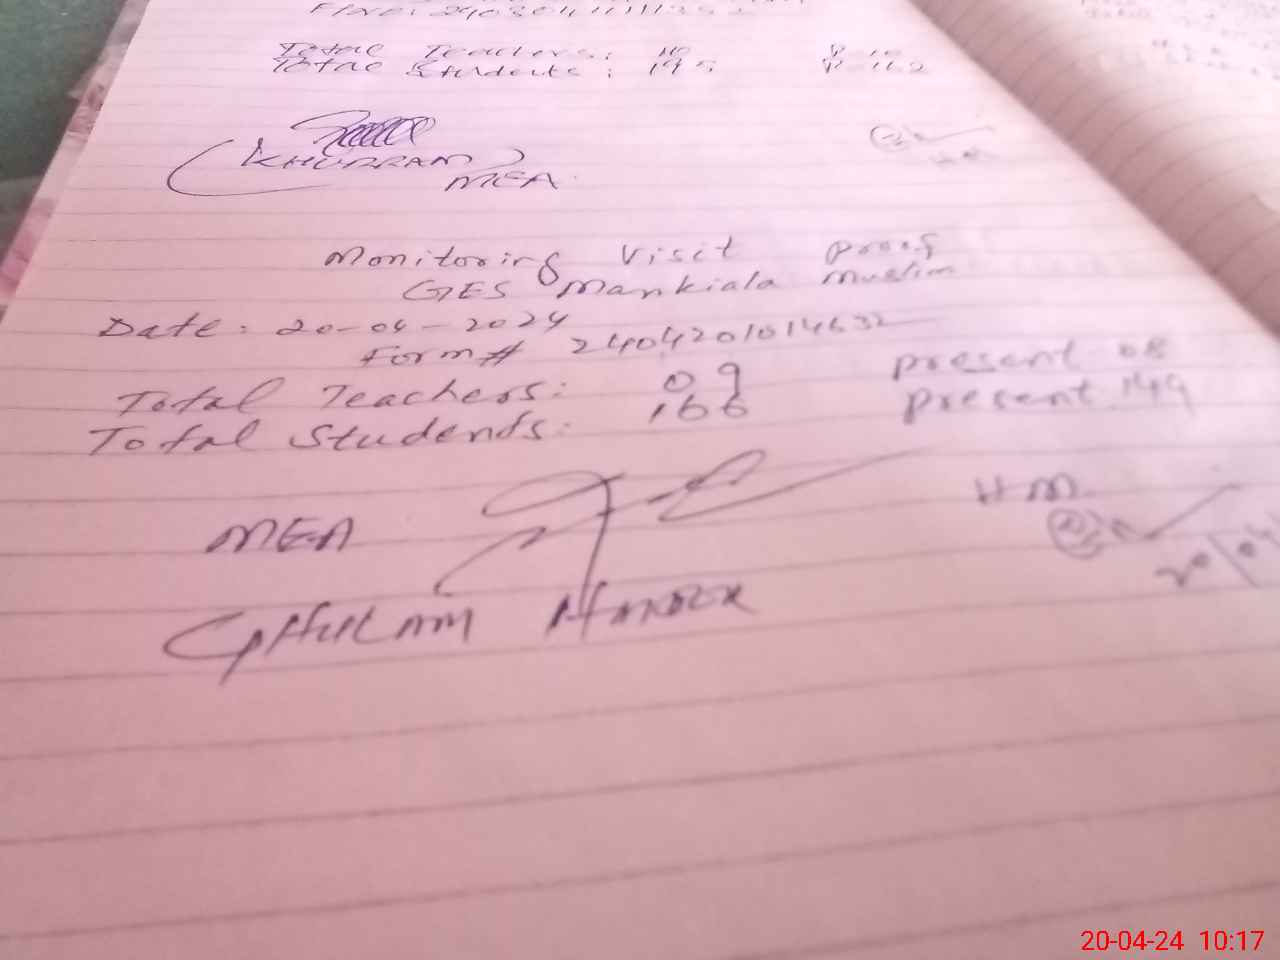 Total Teachers: 10
Total Students: 195
(KHURRAM)
MEA
HM
Monitoring Visit proof
GES Mankiala Muslim
Date: 20-04-2024
Form# 2404201014632
Total Teachers: 09 present 08
Total Students: 166 present 149
MEA
HM
20/04
GHULAM HAIDER
20-04-24 10:17